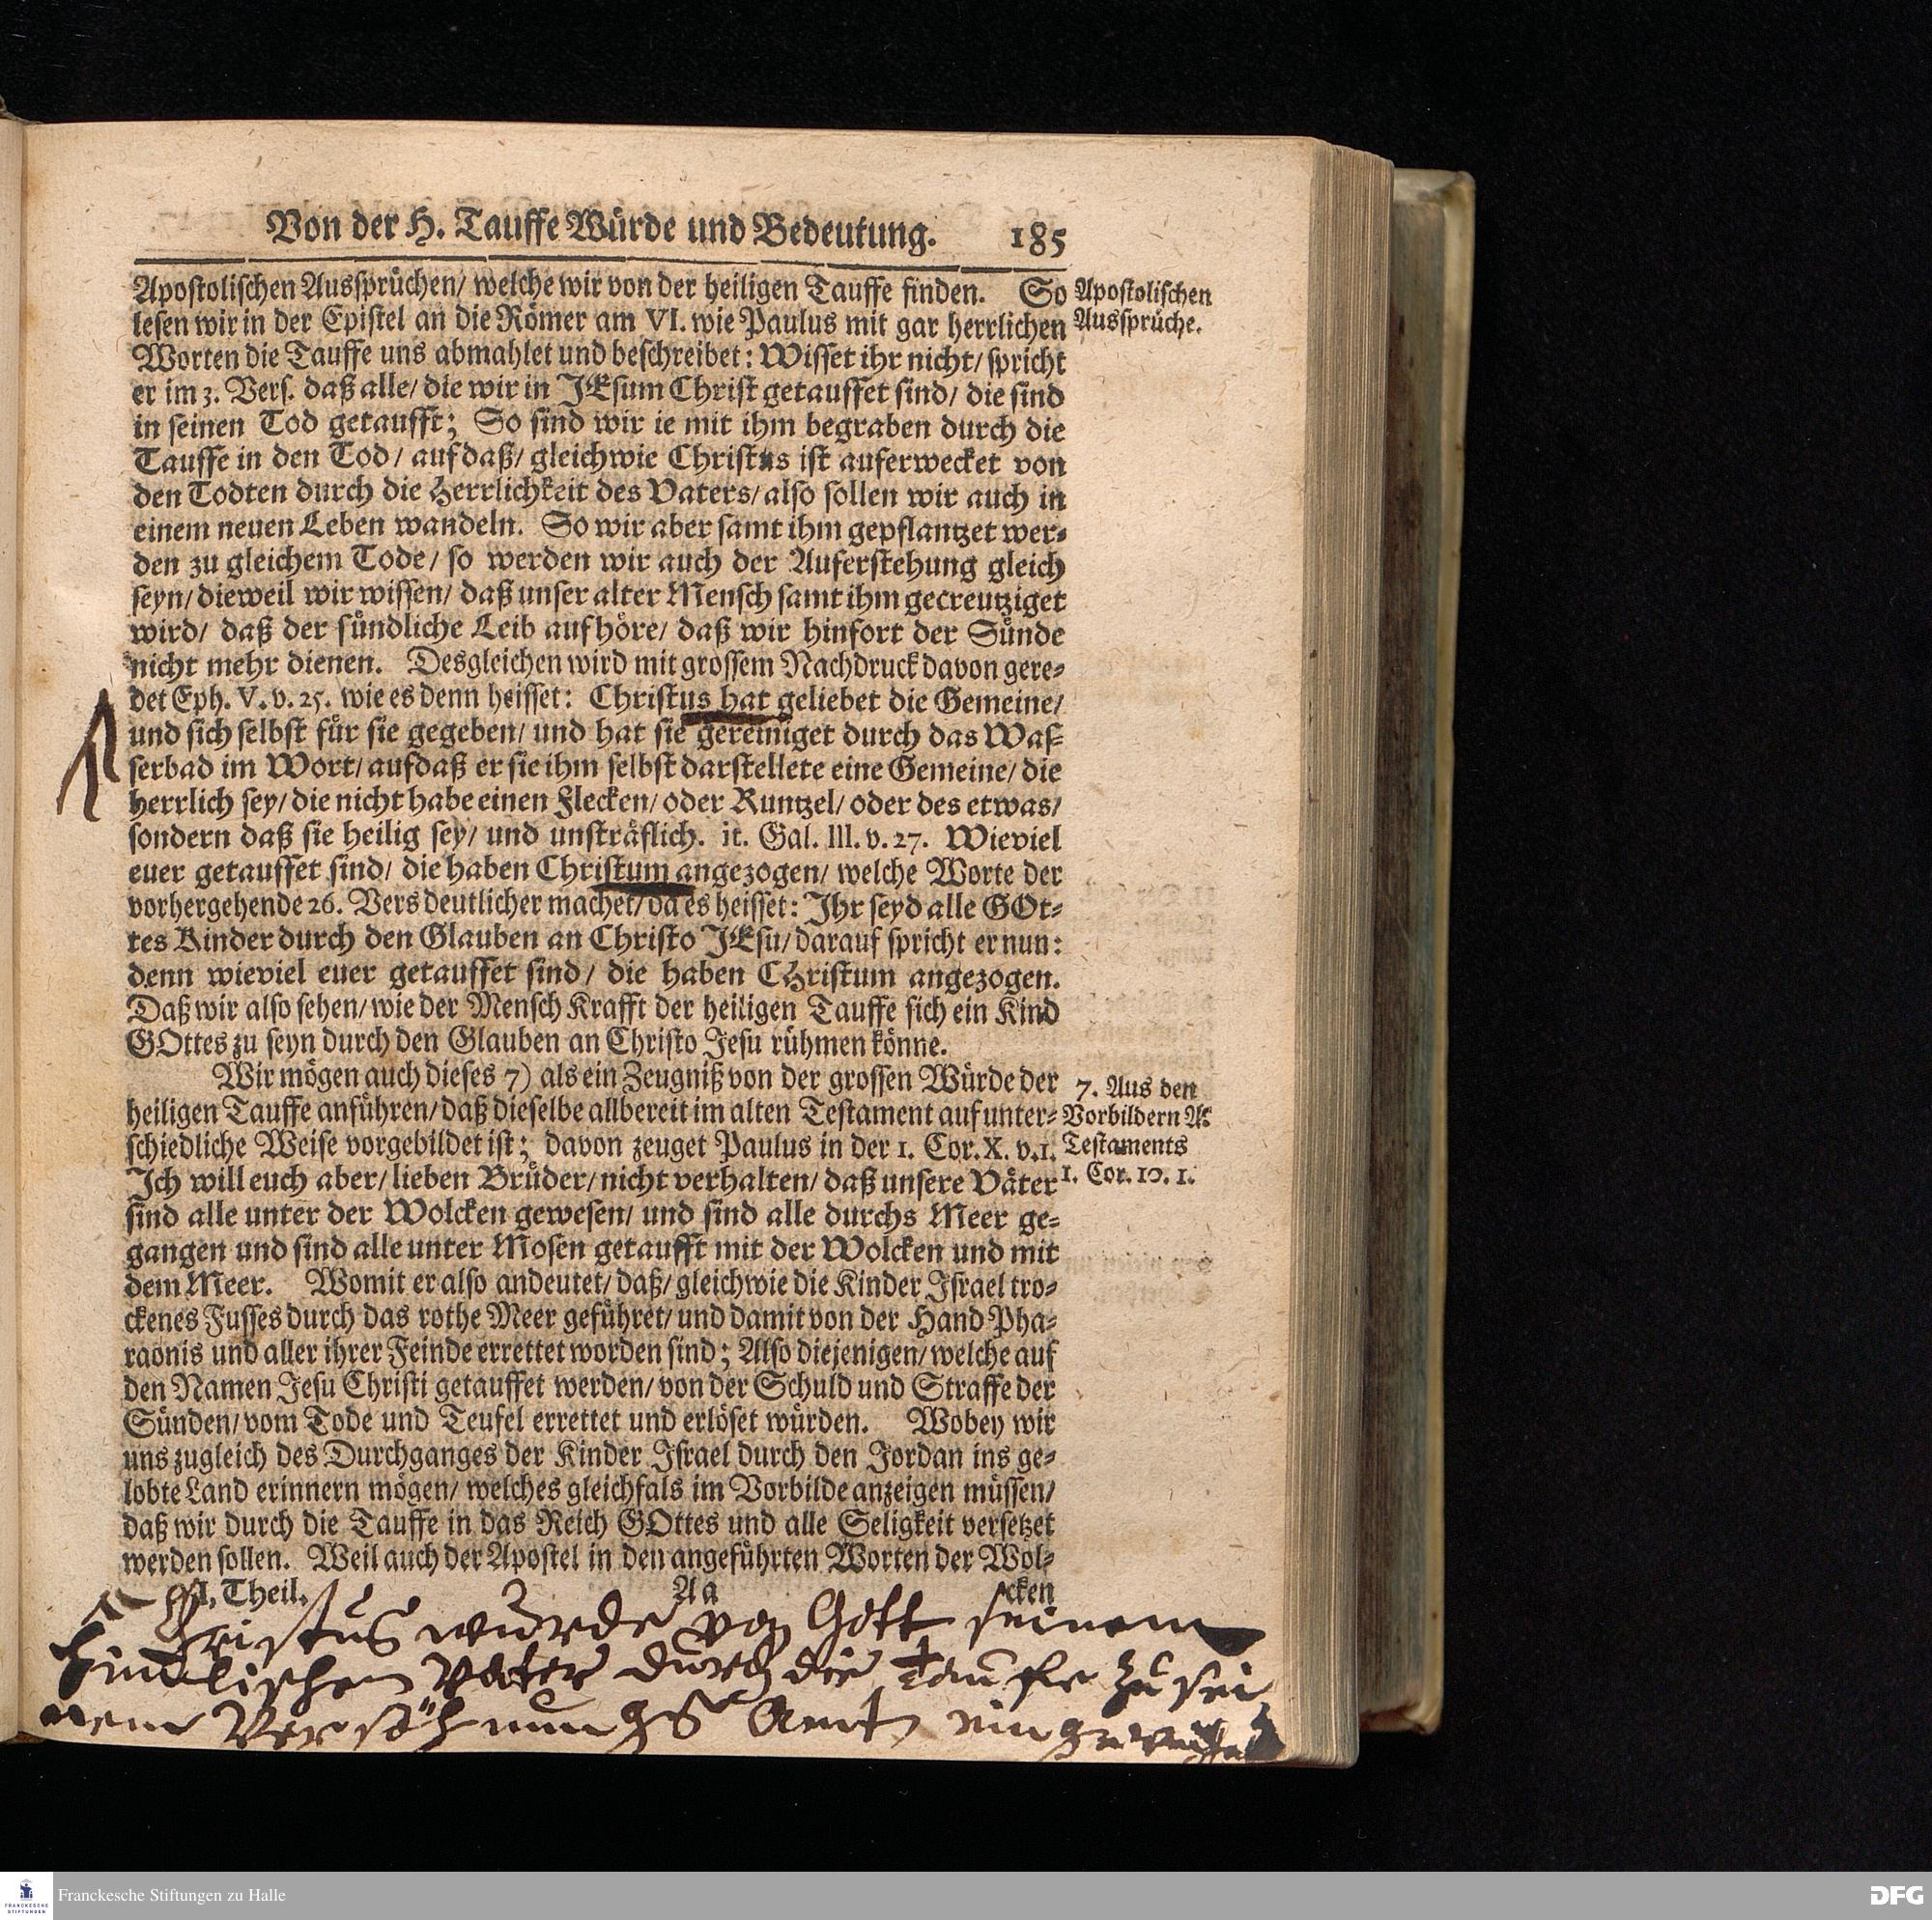 Von der H. Tauffe Würde und Bedeutung. 185
Apostolischen Aussprüchen/ welche wir von der heiligen Tauffe finden. So
lesen wir in der Epistel an die Römer am VI. wie Paulus mit gar herrlichen
Worten die Tauffe uns abmahlet und beschreibet: Wisset ihr nicht/ spricht
er im 3. Vers. daß alle/ die wir in JEsum Christ getauffet sind/ die sind
in seinen Tod getaufft; So sind wir ie mit ihm begraben durch die
Tauffe in den Tod/ auf daß/ gleichwie Christus ist auferwecket von
den Todten durch die Herrlichkeit des Vaters/ also sollen wir auch in
einem neuen Leben wandeln. So wir aber samt ihm gepflantzet wer-
den zu gleichem Tode/ so werden wir auch der Auferstehung gleich
seyn/ dieweil wir wissen/ daß unser alter Mensch samt ihm gecreutziget
wird/ daß der sündliche Leib aufhöre/ daß wir hinfort der Sünde
nicht mehr dienen. Desgleichen wird mit grossem Nachdruck davon gere-
det Eph. V. v. 25. wie es denn heisset: Christus hat geliebet die Gemeine/
und sich selbst für sie gegeben/ und hat sie gereiniget durch das Was-
serbad im Wort/ aufdaß er sie ihm selbst darstellete eine Gemeine/ die
herrlich sey/ die nicht habe einen Flecken/ oder Runtzel/ oder des etwas/
sondern daß sie heilig sey/ und unsträflich. it. Gal. III. v. 27. Wieviel
euer getauffet sind/ die haben Christum angezogen/ welche Worte der
vorhergehende 26. Vers deutlicher machet/ da es heisset: Ihr seyd alle GOt-
tes Kinder durch den Glauben an Christo JEsu/ darauf spricht er nun:
denn wieviel euer getauffet sind/ die haben CHristum angezogen.
Daß wir also sehen/ wie der Mensch Krafft der heiligen Tauffe sich ein Kind
GOttes zu seyn durch den Glauben an Christo Jesu rühmen könne.
Wir mögen auch dieses 7) als ein Zeugniß von der grossen Würde der
heiligen Tauffe anführen/ daß dieselbe allbereit im alten Testament auf unter-
schiedliche Weise vorgebildet ist; davon zeuget Paulus in der 1. Cor. X. v. 1.
Ich will euch aber/ lieben Brüder/ nicht verhalten/ daß unsere Väter
sind alle unter der Wolcken gewesen/ und sind alle durchs Meer ge-
gangen und sind alle unter Mosen getaufft mit der Wolcken und mit
dem Meer. Womit er also andeutet/ daß/ gleichwie die Kinder Israel tro-
ckenes Fusses durch das rothe Meer geführet/ und damit von der Hand Pha-
raonis und aller ihrer Feinde errettet worden sind; Also diejenigen/ welche auf
den Namen Jesu Christi getauffet werden/ von der Schuld und Straffe der
Sünden/ vom Tode und Teufel errettet und erlöset würden. Wobey wir
uns zugleich des Durchganges der Kinder Israel durch den Jordan ins ge-
lobte Land erinnern mögen/ welches gleichfals im Vorbilde anzeigen müssen/
daß wir durch die Tauffe in das Reich GOttes und alle Seligkeit versetzet
werden sollen. Weil auch der Apostel in den angeführten Worten der Wol-
Theil. Aa cken
Apostolischen
Aussprüche.
7. Aus den
Vorbildern A.
Testaments
1. Cor. 10. 1.
Christus wurde von Gott seinem
himmlischen Vater durch die Taufe zu sei
nem Versöhnungs Amt
Franckesche Stiftungen zu Halle
FRANCKESCHE
STIFTUNGEN
DFG